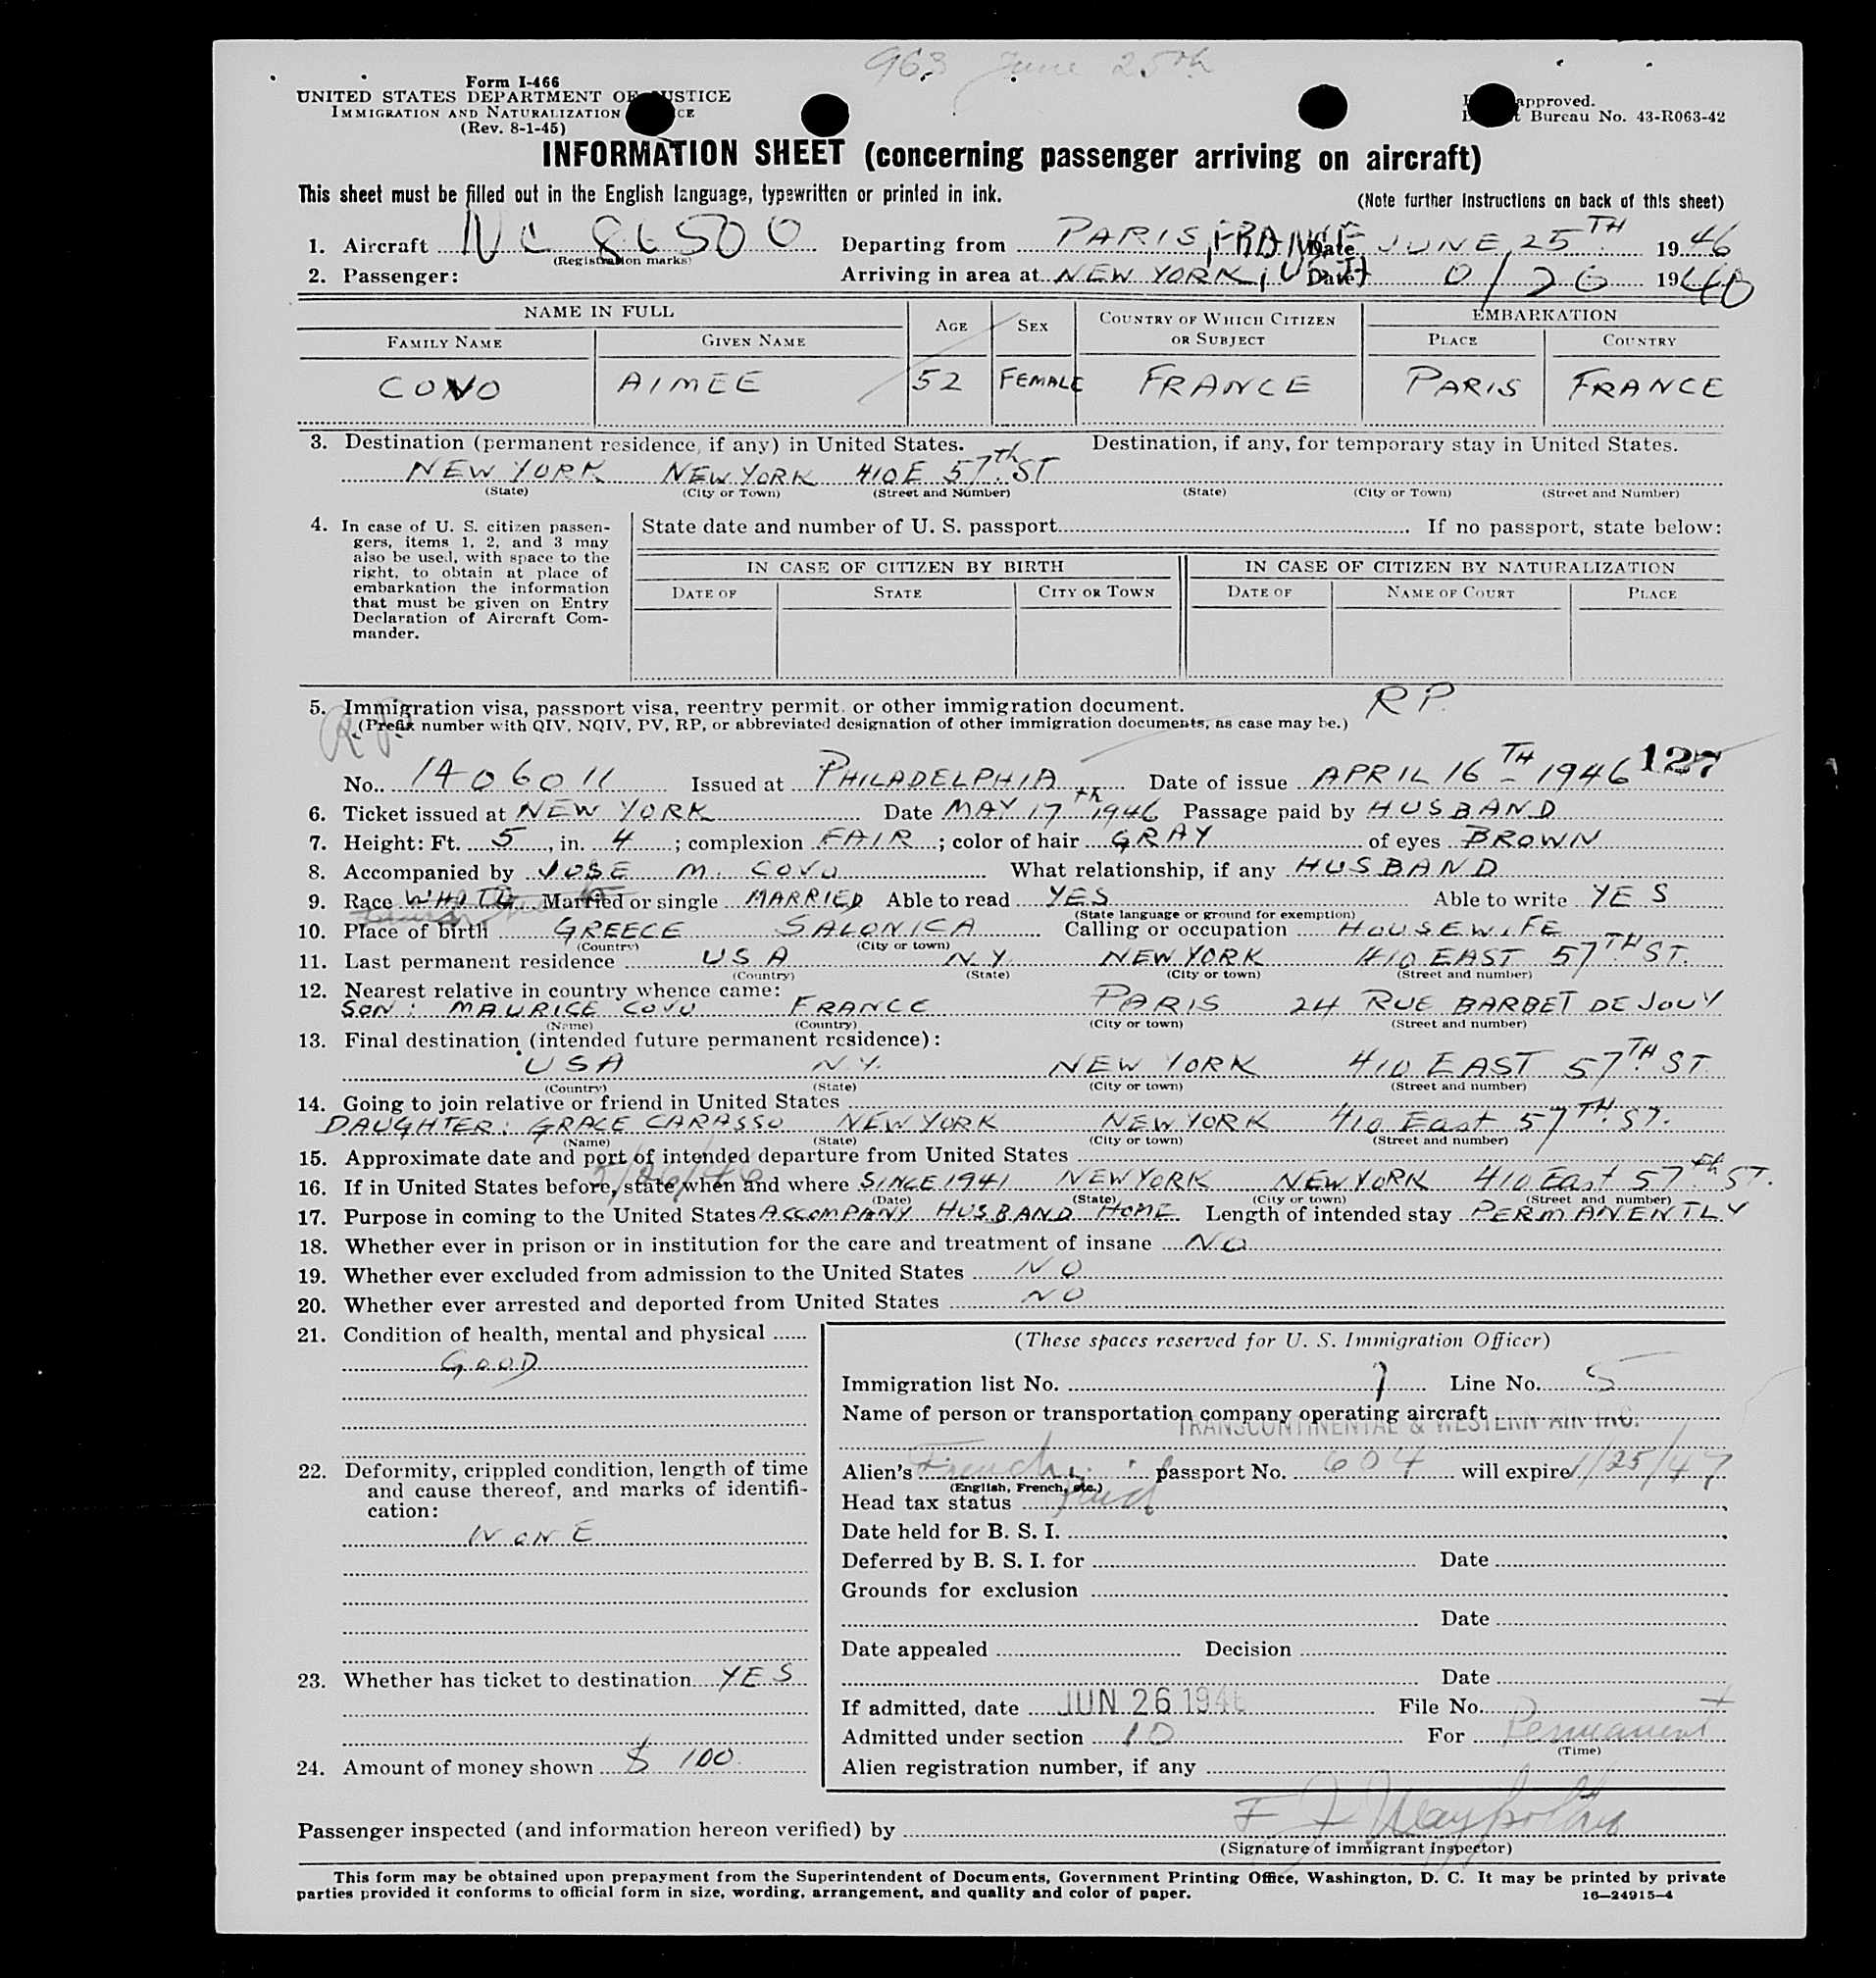 963 June 25th
Form I-466
UNITED STATES DEPARTMENT OF JUSTICE
IMMIGRATION AND NATURALIZATION
(Rev. 8-1-45)
approved.
Bureau No. 43-R063-42
INFORMATION SHEET (concerning passenger arriving on aircraft)
This sheet must be filled out in the English language, typewritten or printed in ink. (Note further instructions on back of this sheet)
1. Aircraft NC 86500 Departing from PARIS, FRANCE Date JUNE 25TH 1946
(Registration marks)
2. Passenger: Arriving in area at NEW YORK, USA Date 19
NAME IN FULL AGE SEX COUNTRY OF WHICH CITIZEN OR SUBJECT EMBARKATION
FAMILY NAME GIVEN NAME PLACE COUNTRY
COVO AIMEE 52 FEMALE FRANCE PARIS FRANCE
3. Destination (permanent residence, if any) in United States. Destination, if any, for temporary stay in United States.
NEW YORK NEW YORK 410 E 57th ST
(State) (City or Town) (Street and Number) (State) (City or Town) (Street and Number)
4. In case of U. S. citizen passengers, items 1, 2, and 3 may also be used, with space to the right, to obtain at place of embarkation the information that must be given on Entry Declaration of Aircraft Commander.
State date and number of U. S. passport If no passport, state below:
IN CASE OF CITIZEN BY BIRTH IN CASE OF CITIZEN BY NATURALIZATION
DATE OF STATE CITY OR TOWN DATE OF NAME OF COURT PLACE
5. Immigration visa, passport visa, reentry permit, or other immigration document. RP
(Prefix number with QIV, NQIV, PV, RP, or abbreviated designation of other immigration documents, as case may be.)
R.P.
127
No. 1406011 Issued at PHILADELPHIA Date of issue APRIL 16TH 1946
6. Ticket issued at NEW YORK Date MAY 17th 1946 Passage paid by HUSBAND
7. Height: Ft. 5, in. 4; complexion FAIR; color of hair GRAY of eyes BROWN
8. Accompanied by JOSE M. COVO What relationship, if any HUSBAND
9. Race WHITE Married or single MARRIED Able to read YES Able to write YES
(State language or ground for exemption)
10. Place of birth GREECE SALONICA Calling or occupation HOUSEWIFE
(Country) (City or town)
11. Last permanent residence USA N.Y. NEW YORK 410 EAST 57TH ST.
(Country) (State) (City or town) (Street and number)
12. Nearest relative in country whence came:
SON: MAURICE COVO FRANCE PARIS 24 RUE BARBET DE JOUY
(Name) (Country) (City or town) (Street and number)
13. Final destination (intended future permanent residence):
USA N.Y. NEW YORK 410 EAST 57TH ST.
(Country) (State) (City or town) (Street and number)
14. Going to join relative or friend in United States
DAUGHTER: GRACE CARASSO NEW YORK NEW YORK 410 East 57TH ST.
(Name) (State) (City or town) (Street and number)
15. Approximate date and port of intended departure from United States
5/26/46
16. If in United States before, state when and where SINCE 1941 NEW YORK NEW YORK 410 East 57th ST.
(Date) (State) (City or town) (Street and number)
17. Purpose in coming to the United States ACCOMPANY HUSBAND HOME. Length of intended stay PERMANENTLY
18. Whether ever in prison or in institution for the care and treatment of insane NO
19. Whether ever excluded from admission to the United States NO
20. Whether ever arrested and deported from United States NO
21. Condition of health, mental and physical
GOOD
22. Deformity, crippled condition, length of time and cause thereof, and marks of identification:
NONE
23. Whether has ticket to destination YES
24. Amount of money shown $ 100
(These spaces reserved for U. S. Immigration Officer)
Immigration list No. 1 Line No. 5
Name of person or transportation company operating aircraft
TRANSCONTINENTAL & WESTERN AIR INC.
Alien's French passport No. 604 will expire 1/25/47
(English, French, etc.)
Head tax status Paid
Date held for B. S. I.
Deferred by B. S. I. for Date
Grounds for exclusion
Date
Date appealed Decision
Date
If admitted, date JUN 26 1946 File No.
Admitted under section 10 For Permanent
(Time)
Alien registration number, if any
Passenger inspected (and information hereon verified) by
(Signature of immigrant inspector)
This form may be obtained upon prepayment from the Superintendent of Documents, Government Printing Office, Washington, D. C. It may be printed by private
parties provided it conforms to official form in size, wording, arrangement, and quality and color of paper. 16—24915-4